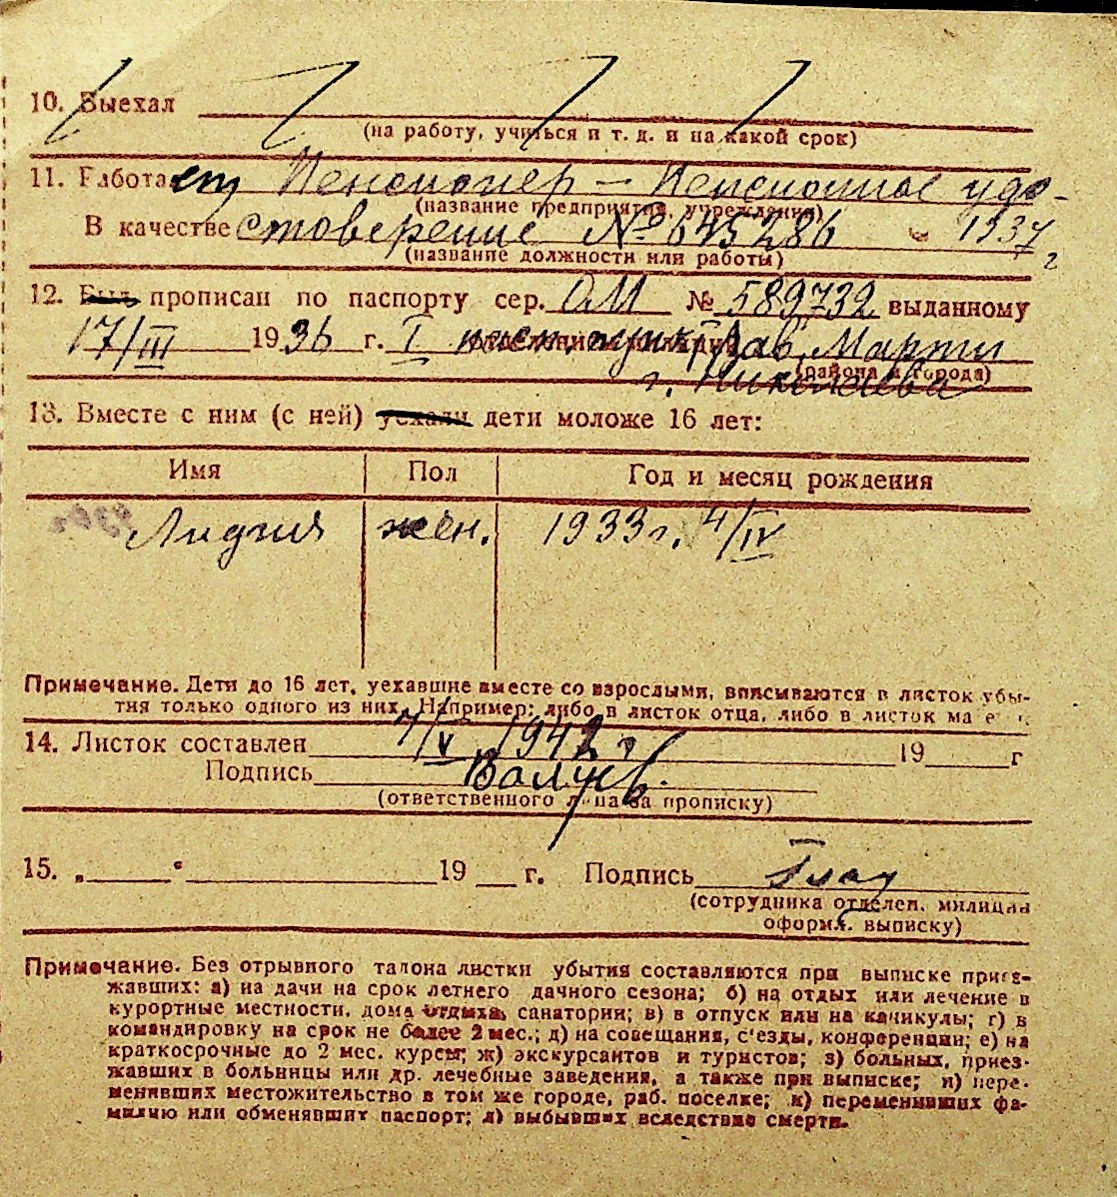 10. Выехал
(на работу, учиться и т. д. и на какой срок)
11. Работает Пенсионер – Пенсионное удо-
(название предприятия, учреждения)
В качестве стоверение № 645286 1937 г
(название должности или работы)
12. Был прописан по паспорту сер. ОМ № 589732 выданному
17/III 1936 г. I Марти
(района и города)
г. Николаева
13. Вместе с ним (с ней) уехали дети моложе 16 лет:
Имя Пол Год и месяц рождения
Лидия жен. 1933 г. 4/IV
Примечание. Дети до 16 лет, уехавшие вместе со взрослыми, вписываются в листок убы-
тия только одного из них. Например: либо в листок отца, либо в листок
14. Листок составлен 4/V 1942 г 19 г
Подпись
(ответственного лица за прописку)
15. „ “ 19 г. Подпись
(сотрудника отделен. милиции
оформл. выписку)
Примечание. Без отрывного талона листки убытия составляются при выписке приез-
жавших: а) на дачи на срок летнего дачного сезона; б) на отдых или лечение в
курортные местности, дома отдыха, санатории; в) в отпуск или на каникулы; г) в
командировку на срок не более 2 мес.; д) на совещания, с'езды, конференции; е) на
краткосрочные до 2 мес. курсы; ж) экскурсантов и туристов; з) больных, приез-
жавших в больницы или др. лечебные заведения, а также при выписке; и) пере-
менивших местожительство в том же городе, раб. поселке; к) переменивших фа-
милию или обменявших паспорт; л) выбывших вследствие смерти.